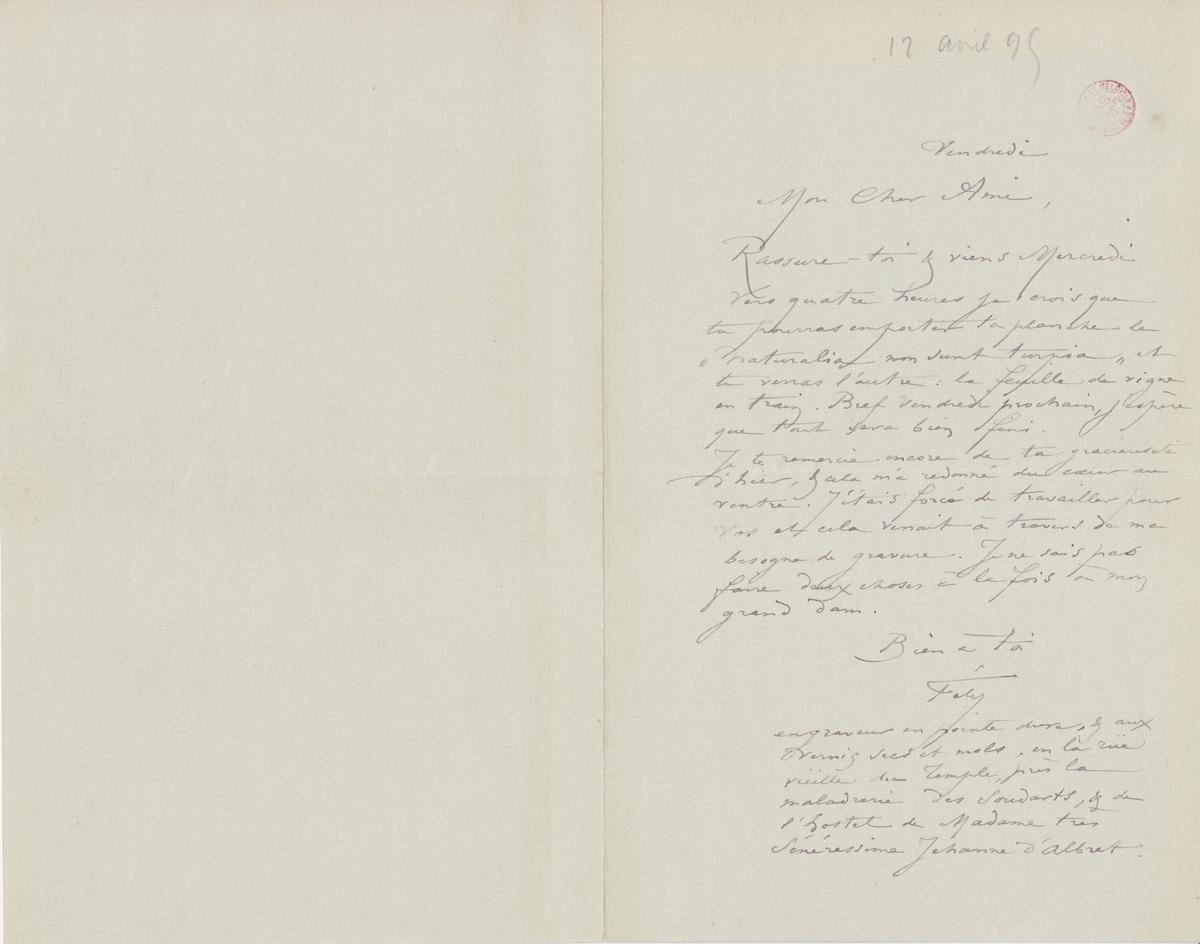 12 avril 95
Vendredi
Mon Cher Ami,
Rassure-toi & viens Mercredi
vers quatre heures je crois que
tu pourras emporter ta planche de
„Naturalia non sunt turpia„ et
tu verras l'autre : la feuille de vigne
en train. Bref Vendredi prochain, j'espère
que tout sera bien fini.
Je te remercie encore de ta gracieuseté
d'hier, & cela m'a redonné du cœur au
ventre. J'étais forcé de travailler pour
Vos et cela venait à travers de ma
besogne de gravure. Je ne sais pas
faire deux choses à la fois à mon
grand dam.
Bien à toi
Fély
engraveur en pointe dure, & aux
Vernis secs et mols, en la rüe
vieille du Temple, près la
maladrerie des Soudarts, & de
l'hostel de Madame très
Sénéressime Jehanne d'Albret.